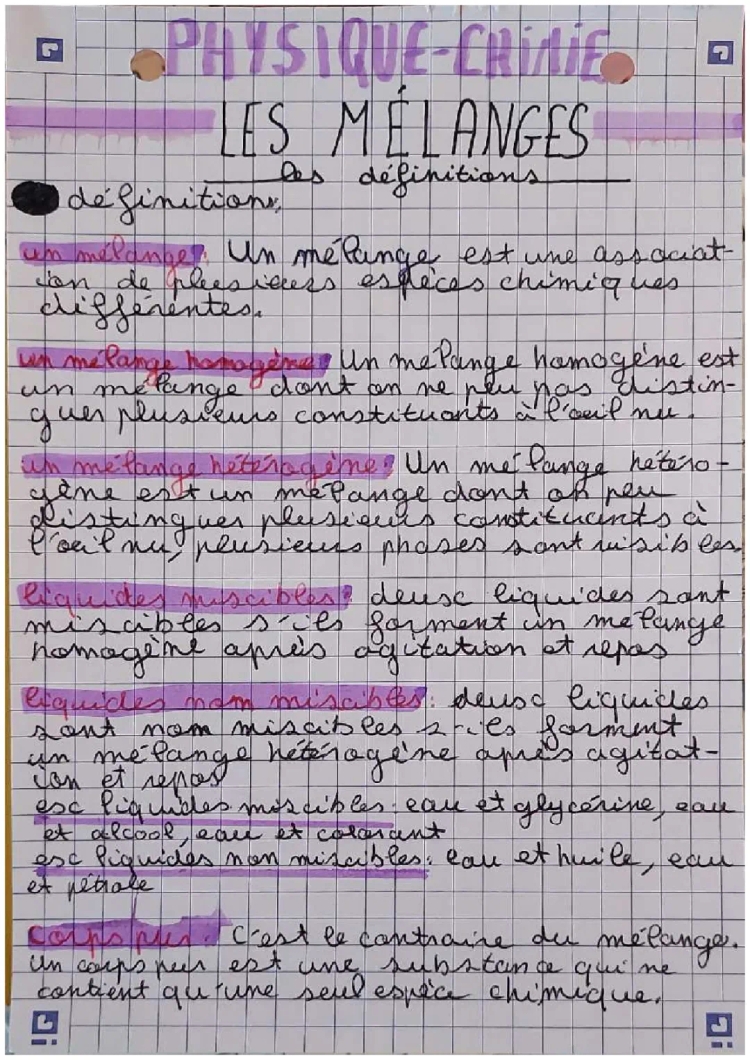 PHYSIQUE-CHiMiE
LES MÉLANGES
les définitions
définitions
un mélange: Un mélange est une associat-
ion de plusieurs espèces chimiques
différentes.
un mélange homogène: Un mélange homogène est
un mélange dont on ne peu pas distin-
guer plusieurs constituants à l'oeil nu.
un mélange hétérogène: Un mélange hétéro-
gène est un mélange dont on peu
distinguer plusieurs constituants à
l'oeil nu, plusieurs phases sont visibles.
liquides miscibles: deux liquides sont
miscibles s'ils forment un mélange
homogène après agitation et repos
liquides nom miscibles: deux liquides
sont nom miscibles s'ils forment
un mélange hétérogène après agitat-
ion et repos
ex liquides miscibles: eau et glycérine, eau
et alcool, eau et colorant
ex liquides non miscibles: eau et huile, eau
et pétrole
Corps pur: C'est le contraire du mélange.
un corps pur est une substance qui ne
contient qu'une seul espèce chimique.